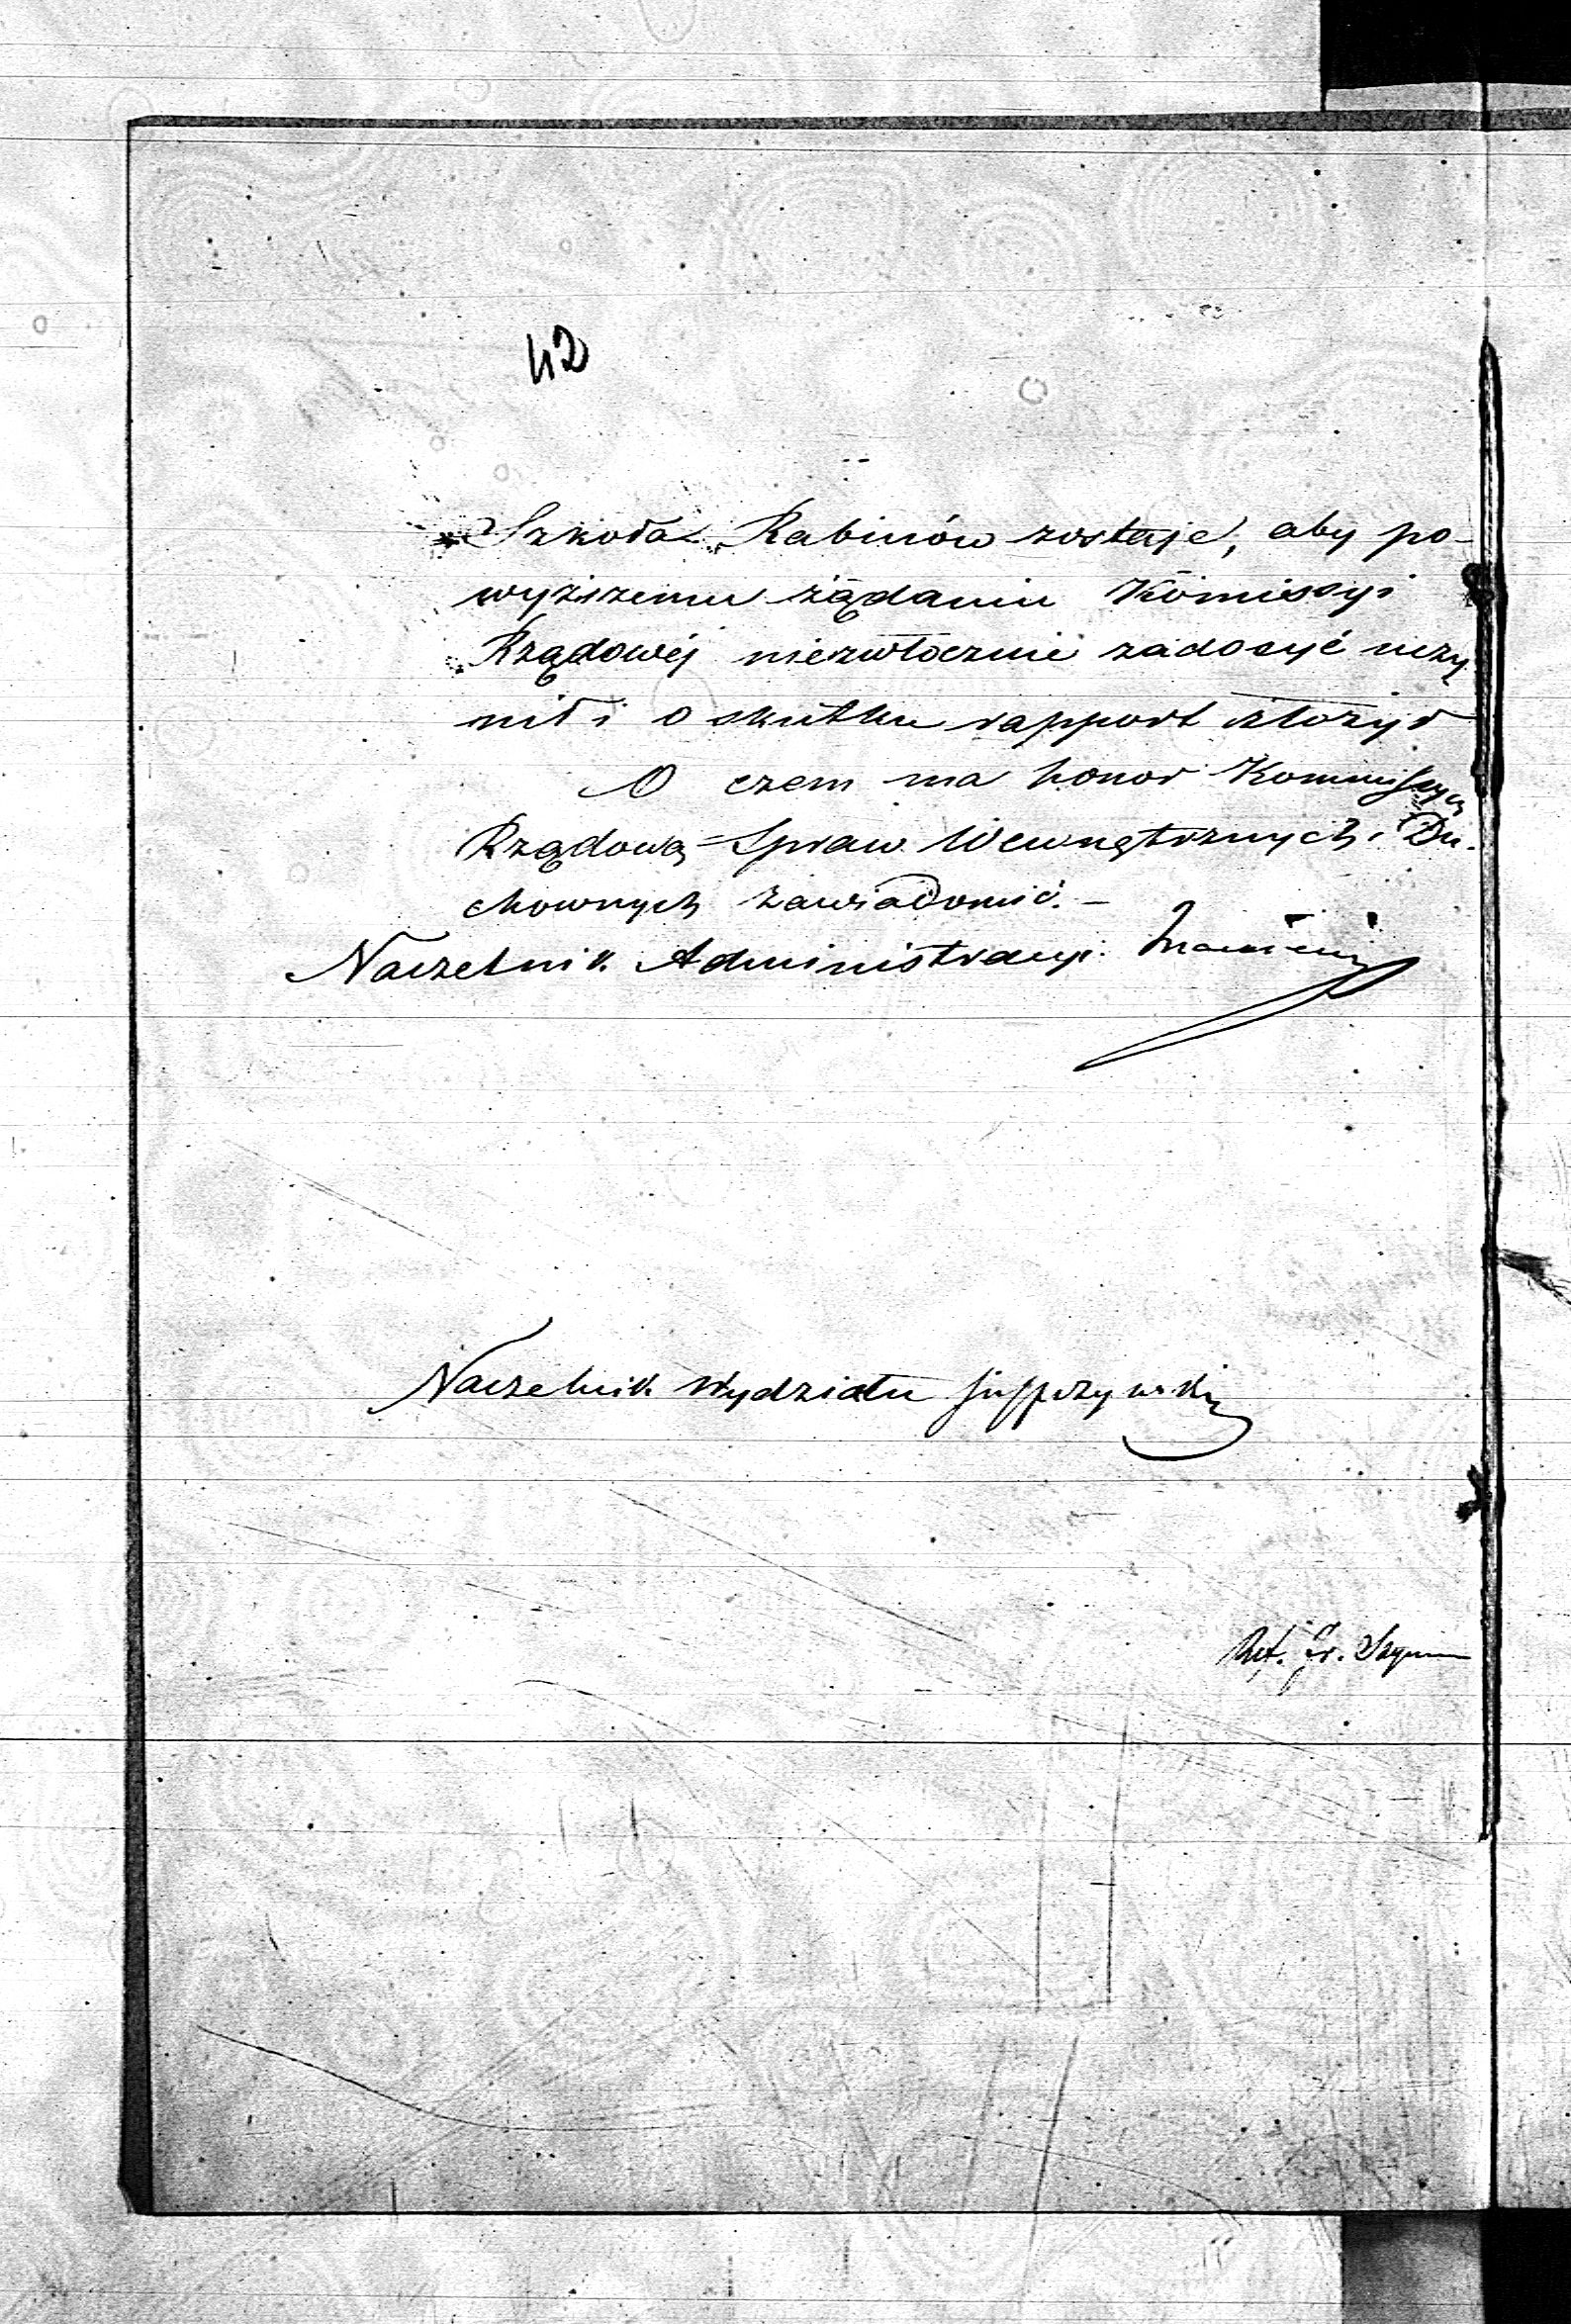 42
Szkoła Rabinów zostaje, aby po-
wyższemu żądaniu Kommissyi
Rządowéj niezwłocznie zadosyć uczy
nił i o skutku rapport złożył
O czem ma honor Kommissyą
Rządową Spraw Wewnętrznych i Du-
chownych zawiadomić. –
Naczelnik Administracyi
Naczelnik Wydziału